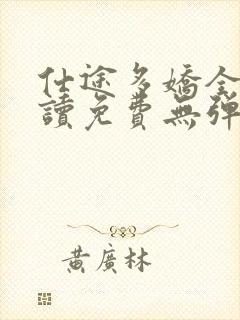 仕途多嬌全
讀免費無彈
黃廣林